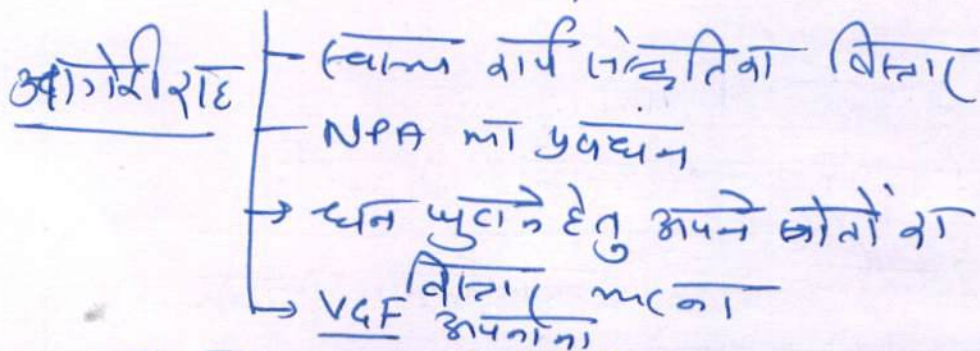 आगे की राह
स्वस्थ कार्य संस्कृति का विस्तार
NPA का प्रबंधन
→ धन जुटाने हेतु अपने स्रोतों का
विस्तार करना
→ VGF अपनाना